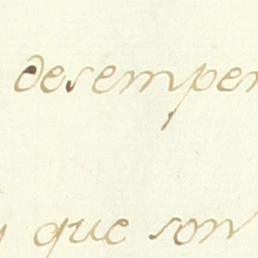 desempeñ
y que son